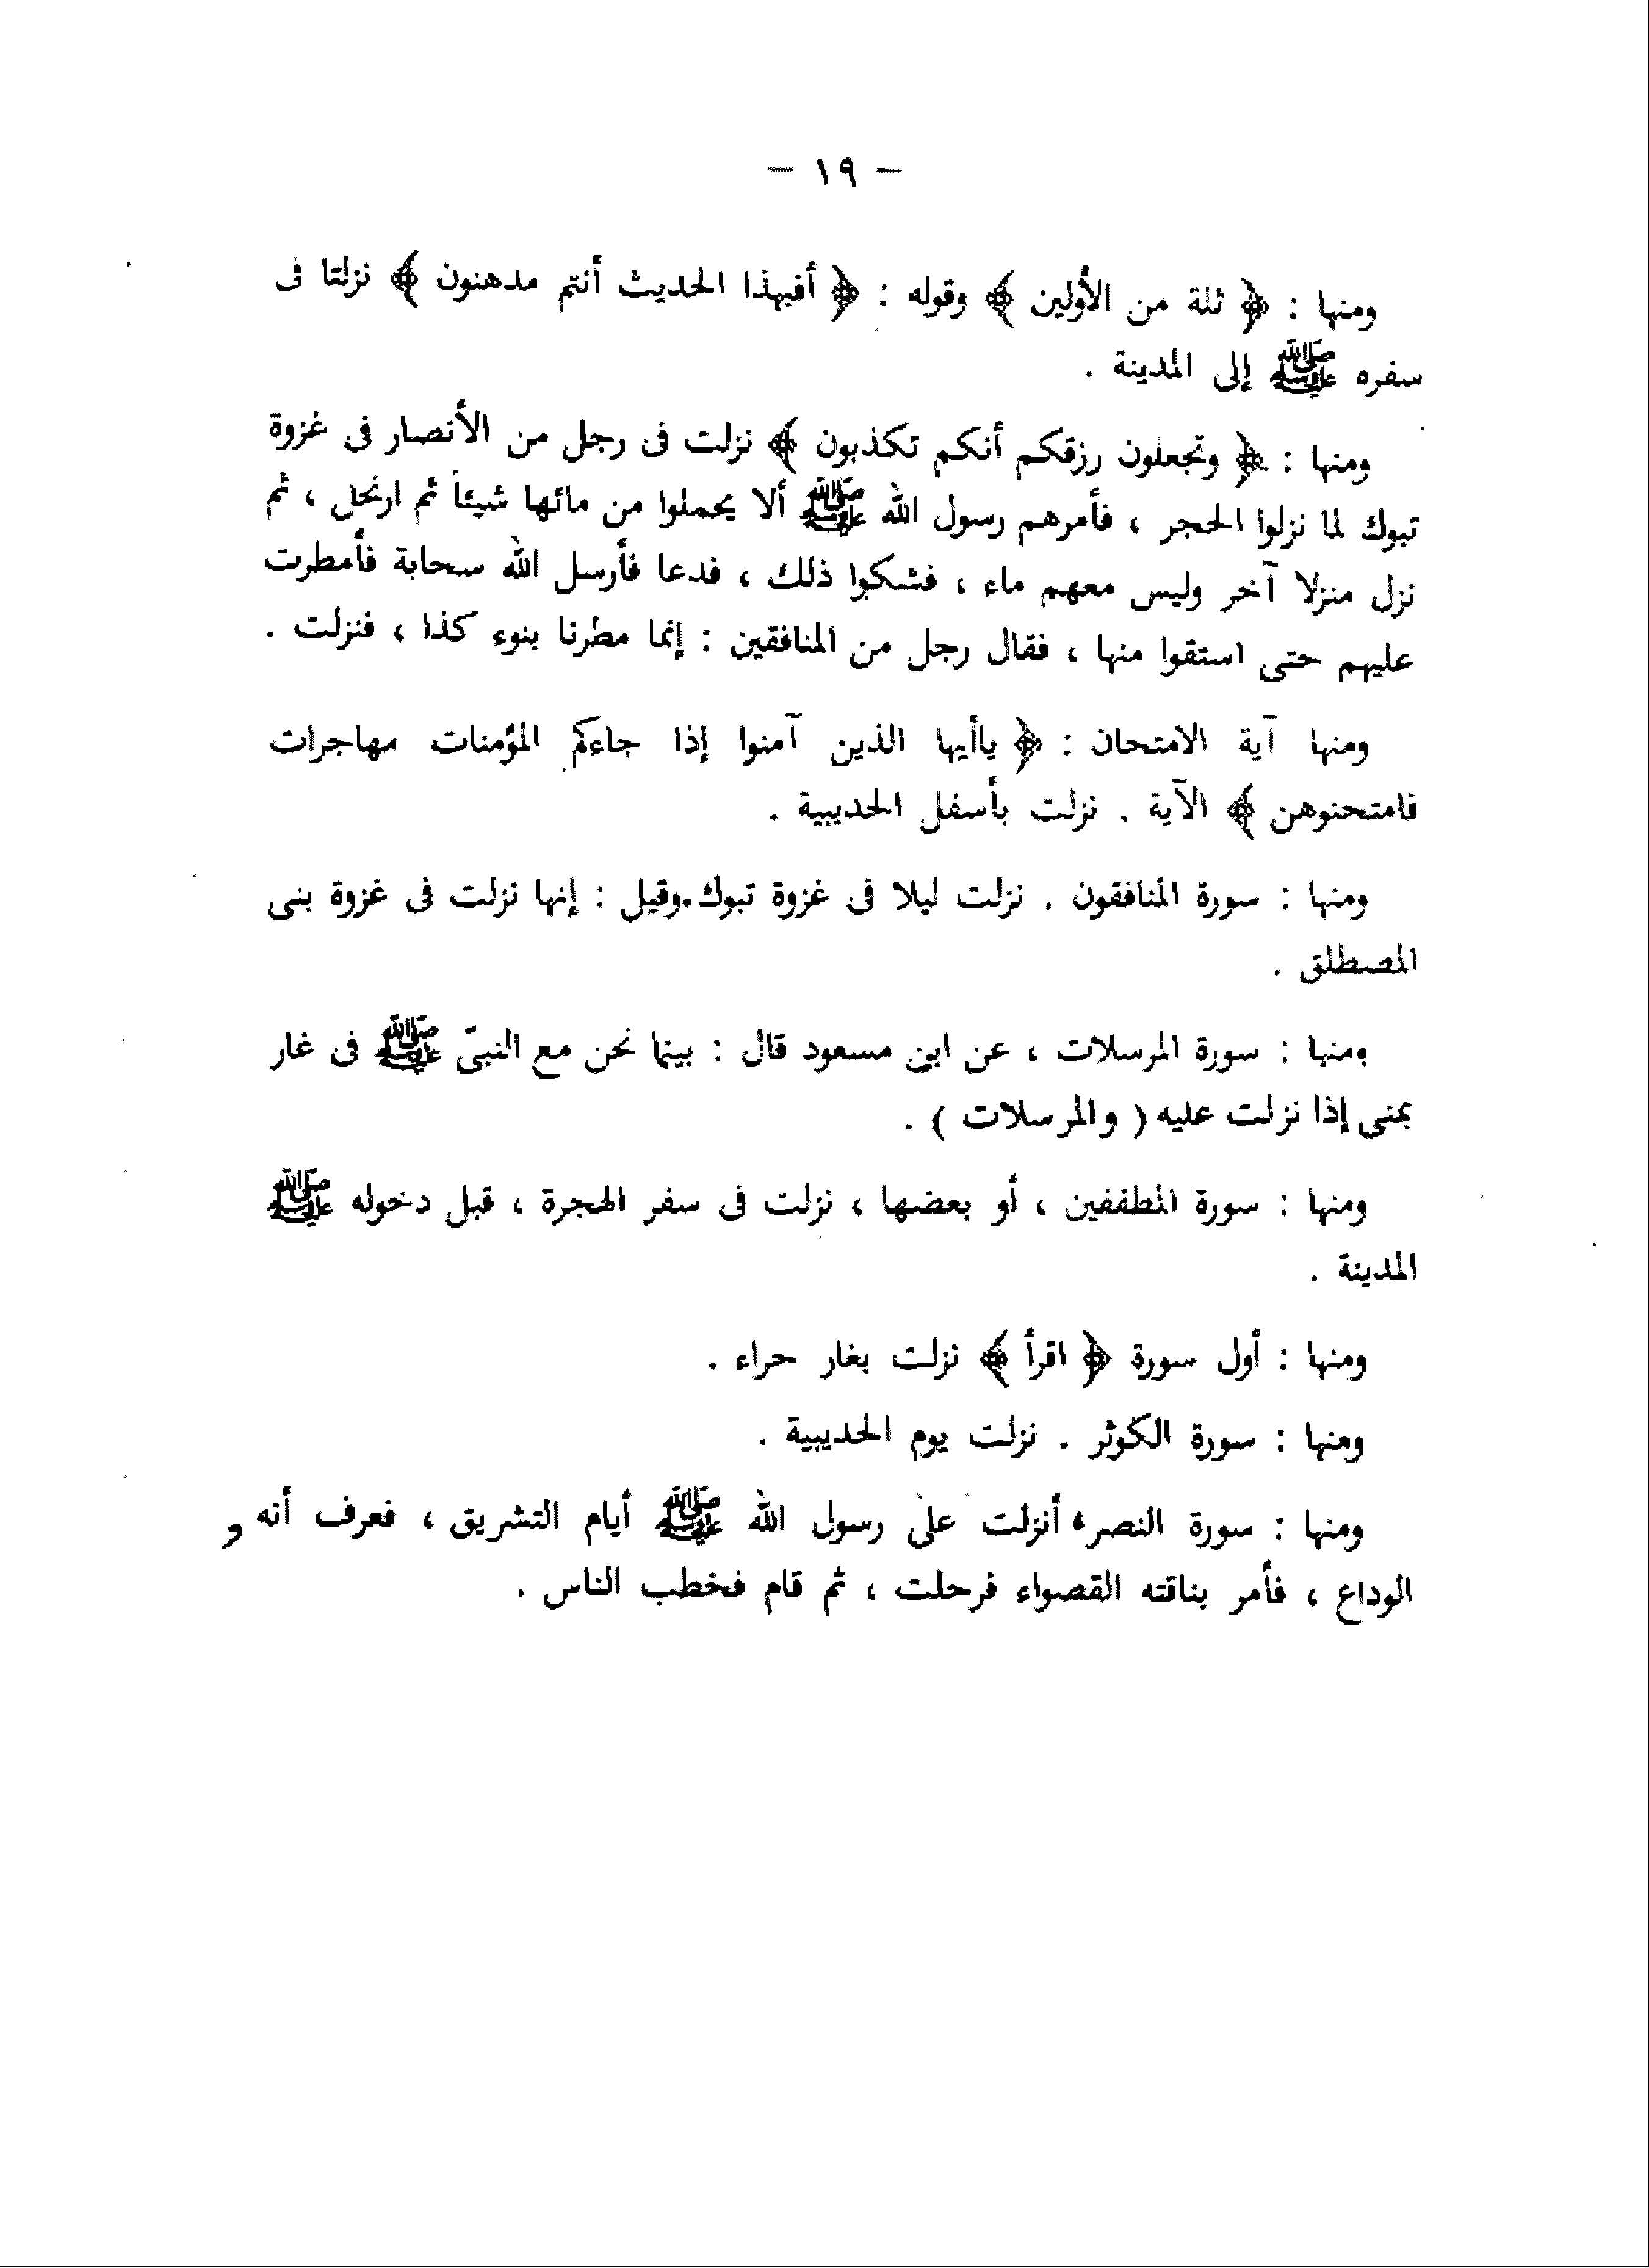 – ١٩ –
ومنها : ﴿ ثلة من الأولين ﴾ وقوله : ﴿ أفبهذا الحديث أنتم مدهنون ﴾ نزلتا فى
سفره ﷺ إلى المدينة .
ومنها : ﴿ وتجعلون رزقكم أنكم تكذبون ﴾ نزلت فى رجل من الأنصار فى غزوة
تبوك لما نزلوا الحجر ، فأمرهم رسول الله ﷺ ألا يحملوا من مائها شيئاً ثم ارتحل ، ثم
نزل منزلا آخر وليس معهم ماء ، فشكوا ذلك ، فدعا فأرسل الله سحابة فأمطرت
عليهم حتى استقوا منها ، فقال رجل من المنافقين : إنما مطرنا بنوء كذا ، فنزلت .
ومنها آية الامتحان : ﴿ ياأيها الذين آمنوا إذا جاءكم المؤمنات مهاجرات
فامتحنوهن ﴾ الآية . نزلت بأسفل الحديبية .
ومنها : سورة المنافقون . نزلت ليلا فى غزوة تبوك.وقيل : إنها نزلت فى غزوة بنى
المصطلق .
ومنها : سورة المرسلات ، عن ابن مسعود قال : بينما نحن مع النبىّ ﷺ فى غار
بمنى إذا نزلت عليه ( والمرسلات ) .
ومنها : سورة المطففين ، أو بعضها ، نزلت فى سفر الهجرة ، قبل دخوله ﷺ
المدينة .
ومنها : أول سورة ﴿ اقرأ ﴾ نزلت بغار حراء .
ومنها : سورة الكوثر . نزلت يوم الحديبية .
ومنها : سورة النصر، أنزلت على رسول الله ﷺ أيام التشريق ، فعرف أنه و
الوداع ، فأمر بناقته القصواء فرحلت ، ثم قام فخطب الناس .